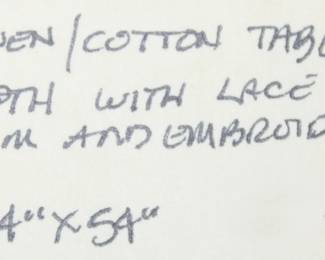 NEN/COTTON TABL
OTH WITH LACE
M AND EMBROID
4" X 54"